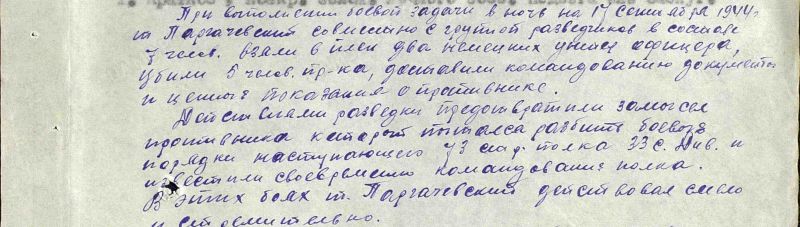 При выполнении боевой задачи в ночь на 17 сентября 1944г
т. Паргачевский совместно с группой разведчиков в составе
7 челов. взяли в плен два немецких унтер офицера,
убили 5 челов. пр-ка, доставили командованию документы
и ценные показания о противнике.
Действиями разведки предотвратили замысел
противника который пытался разбить боевые
порядки наступающего 73 стр. полка 33 с. Див. и
известили своевременно командование полка.
В этих боях т. Паргачевский действовал смело
и стремительно.